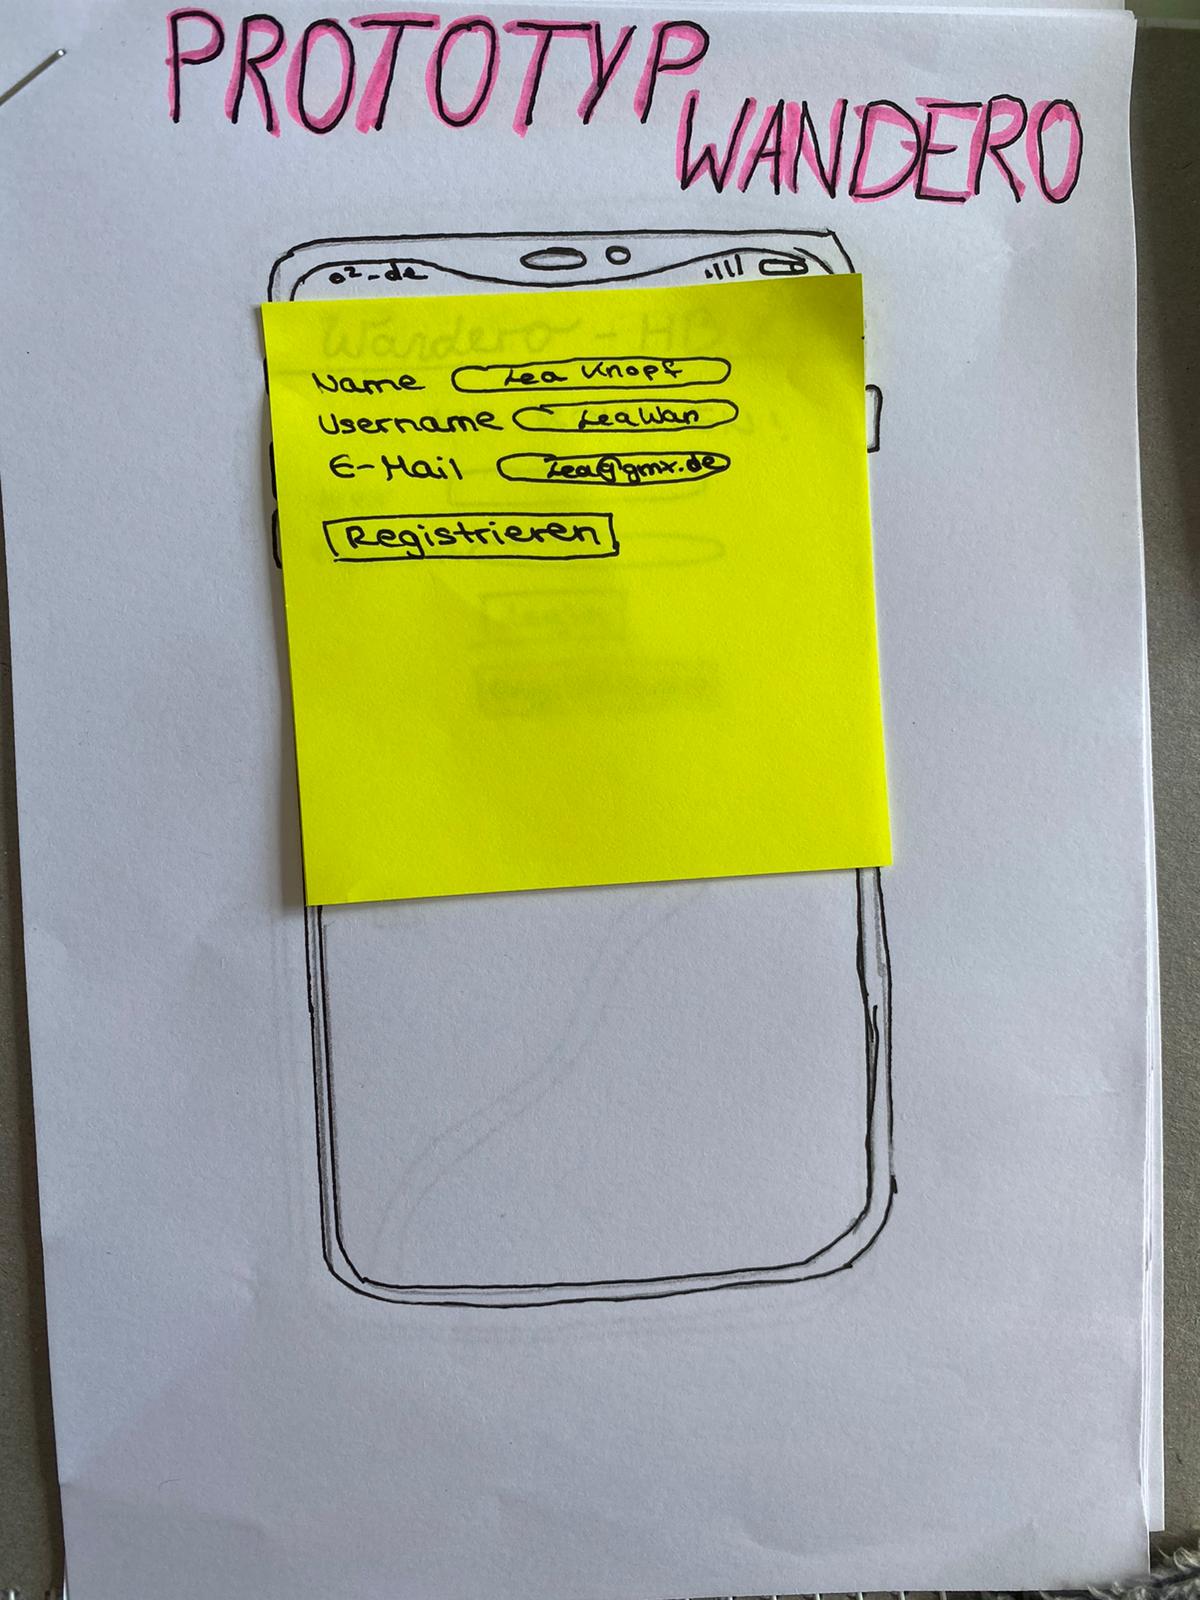 PROTOTYP
WANDERO
o2-de
Wandero - HB
Name Lea Knopf
Username LeaWan
E-Mail Lea@gmx.de
Registrieren